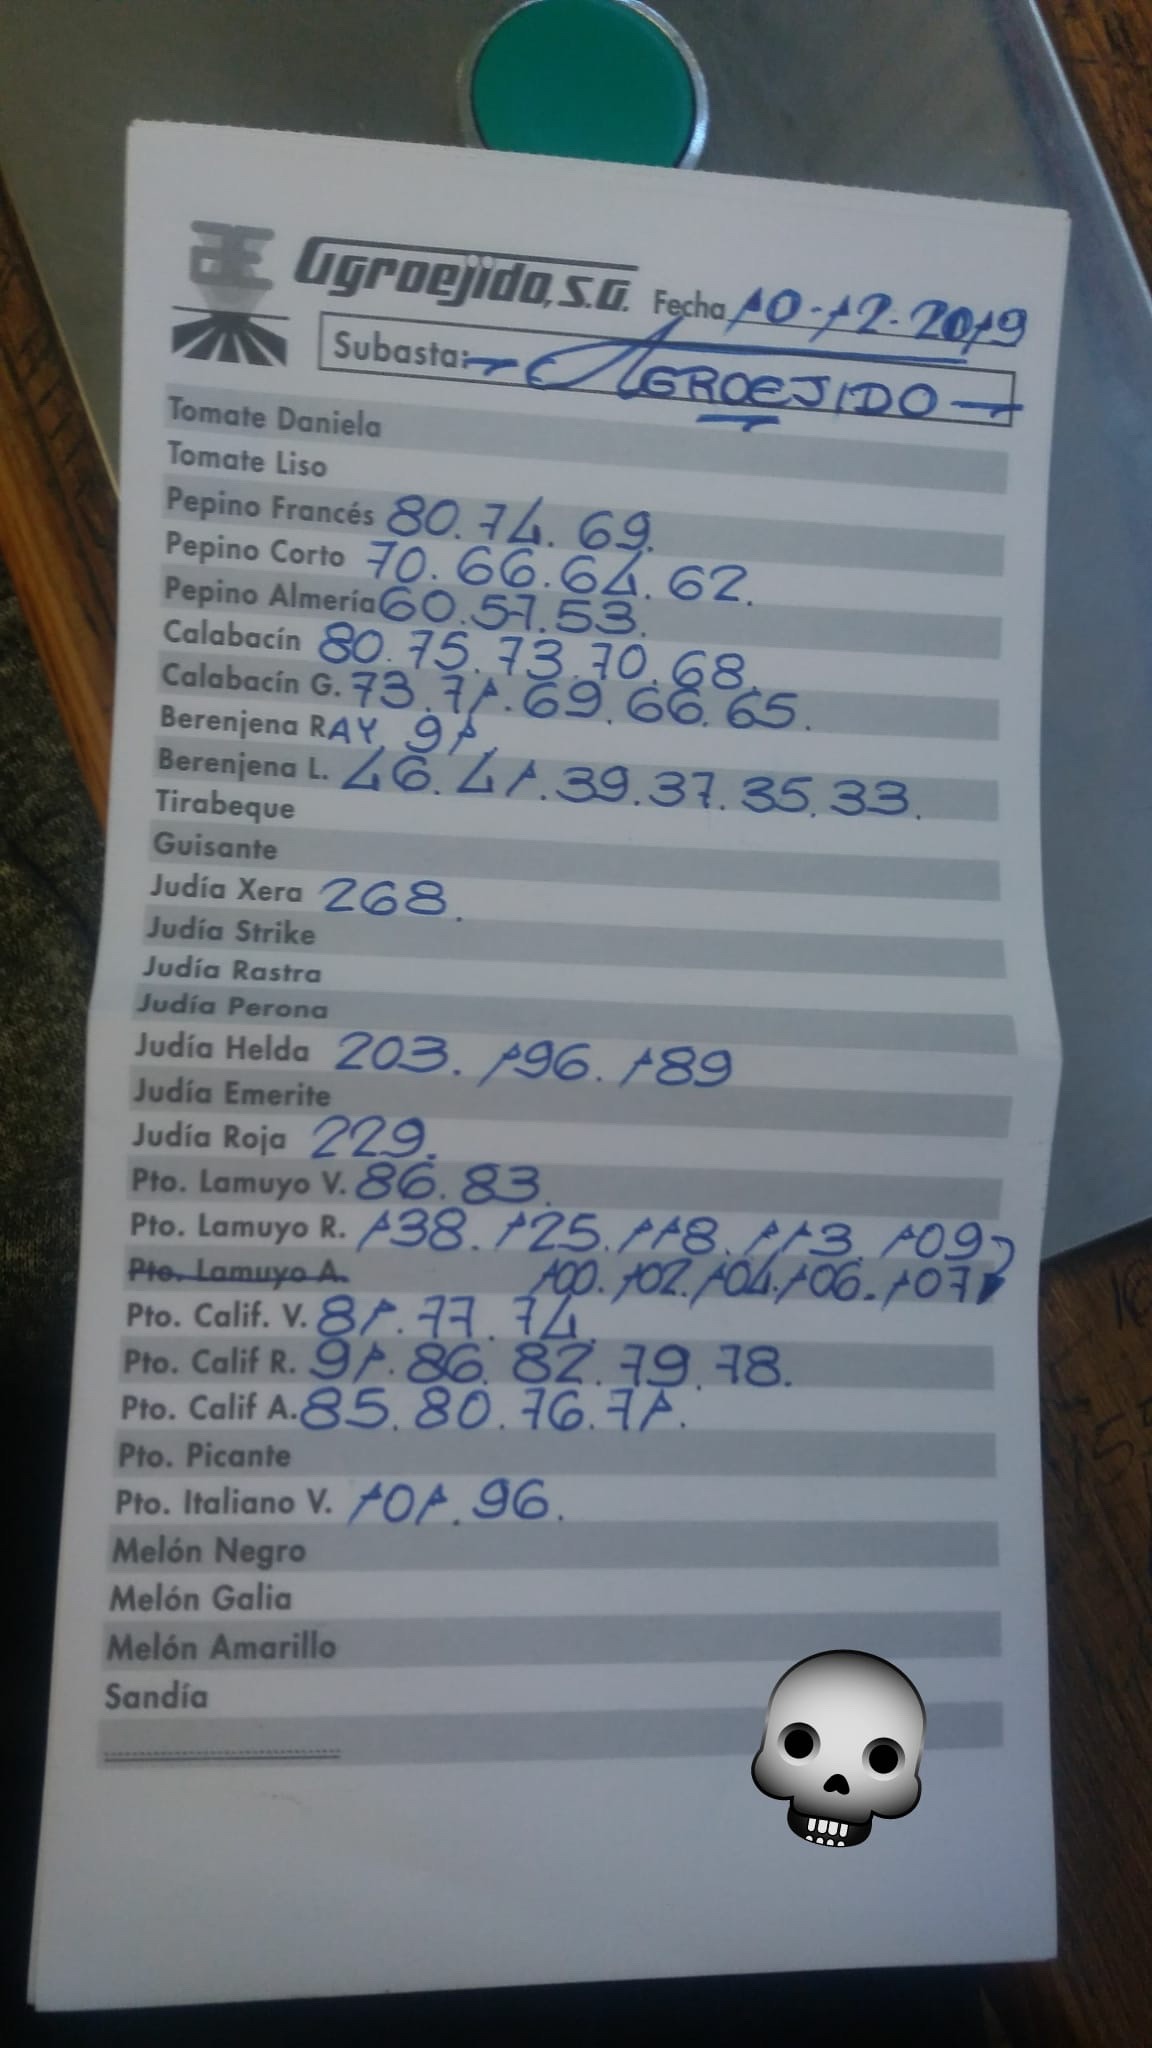 Agroejido, S.A. Fecha 10-12-2019
Subasta: AGROEJIDO
Tomate Daniela
Tomate Liso
Pepino Francés 80. 74. 69.
Pepino Corto 70. 66. 64. 62.
Pepino Almería 60. 57. 53.
Calabacín 80. 75. 73. 70. 68
Calabacín G. 73. 71. 69. 66. 65.
Berenjena RAY 91.
Berenjena L. 46. 41. 39. 37. 35. 33.
Tirabeque
Guisante
Judía Xera 268.
Judía Strike
Judía Rastra
Judía Perona
Judía Helda 203. 196. 189
Judía Emerite
Judía Roja 229.
Pto. Lamuyo V. 86. 83.
Pto. Lamuyo R. 138. 125. 118. 113. 109
Pto. Lamuyo A. 100. 102. 104. 106. 107
Pto. Calif. V. 81. 77. 74.
Pto. Calif R. 91. 86. 82. 79. 78.
Pto. Calif A. 85. 80. 76. 71.
Pto. Picante
Pto. Italiano V. 101. 96.
Melón Negro
Melón Galia
Melón Amarillo
Sandía